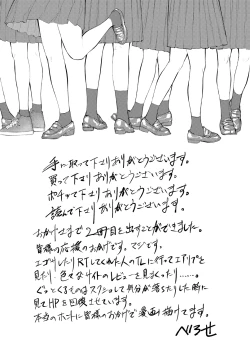 手に取って下さりありがとうございます。
買って下さりありがとうございます。
ポチッて下さりありがとうございます。
読んで下さりありがとうございます。
おかげさまで2冊目を出すことができました。
皆様の応援のおかげです。マジです。
エゴサしたりRTしてくれた人のTLに行ってエリアを
見たり、色々なサイトのレビューを見まくったり……。
ぐっとくるものはスクショして自分が落ちたりした時に
見てHPを回復させています。
本当のホントに皆様のおかげで漫画描けてます。
べろせ